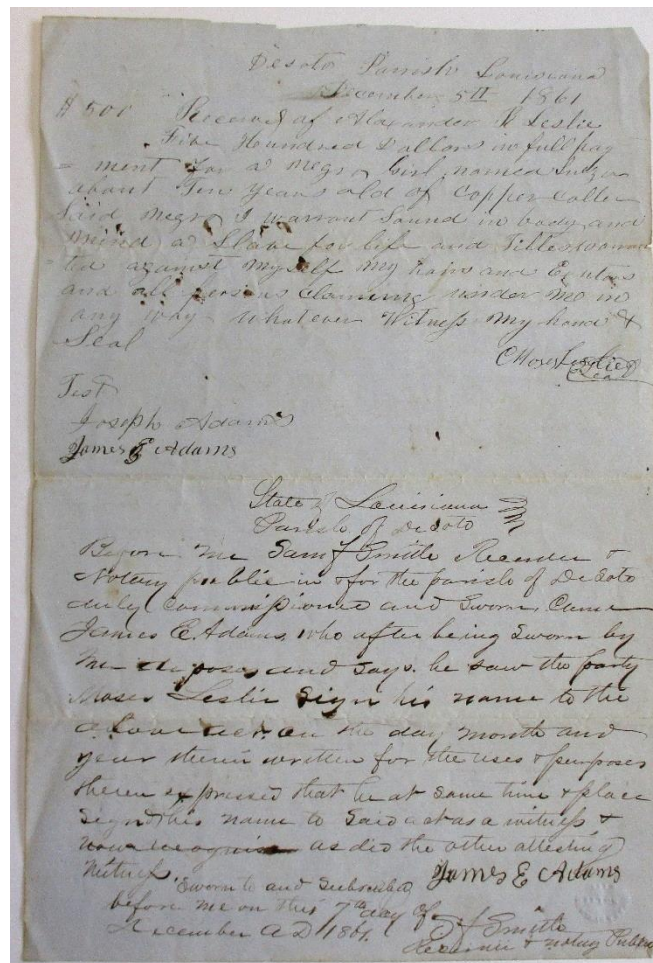 Desoto Parrish Louisiana
December 5th 1861
$500 Received of Alexander Leslie
Five Hundred Dollars in full pay
= ment for a Negro Girl named
about Ten years old of Copper Coller
Said Negro I warrant Sound in body and
mind a Slave for life and Titles warran
= ted against myself my hairs and
and all persons claming under me in
any way whatever Witness my hand &
Seal
Moses Leslie
Seal
Test
Joseph Adams
James E Adams
State of Louisiana
Parish of De Soto
Before me Saml Smith Recorder &
Notary public in & for the parish of DeSoto
duly commissioned and Sworn Came
James E Adams who after being Sworn by
me deposes and says he saw the party
Moses Leslie Sign his name to the
above on the day month and
year therein written for the uses & purposes
therein expressed that he at same time & place
Signed his name to Said act as a witness &
as did the other attesting
witness
James E Adams
Sworn to and Subscribed
before me on this 7th day of
December AD 1861.
S Smith
Recorder & notary Public